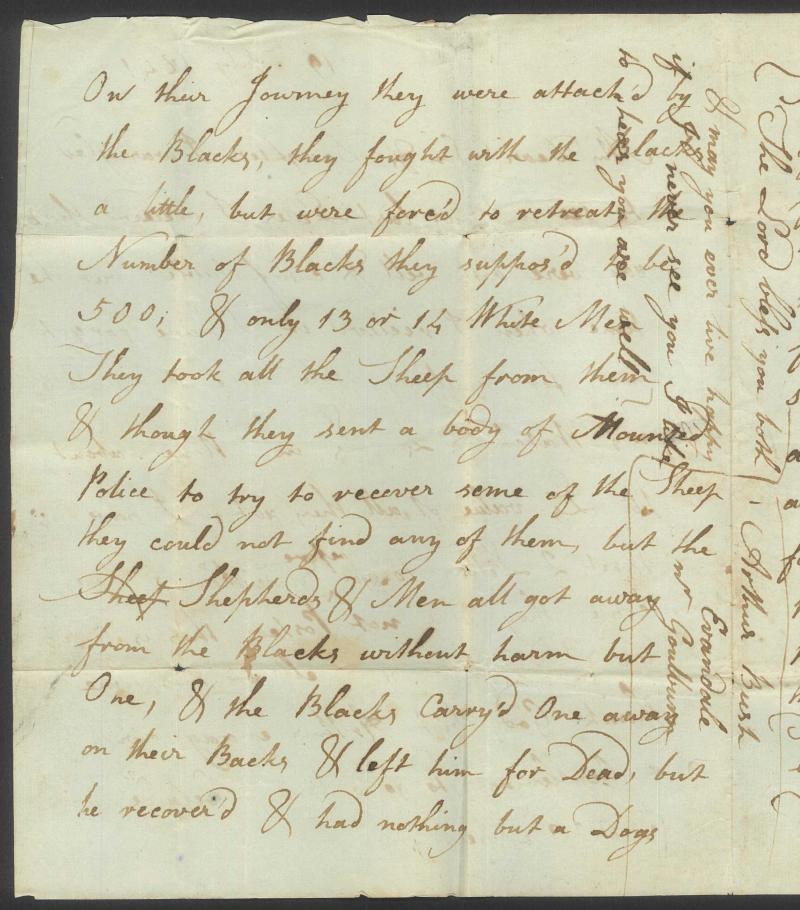 On their Journey they were attack'd by
the Blacks, they fought with the Blacks
a little, but were forc'd to retreat, the
Number of Blacks they suppos'd to be
500, & only 13 or 14 White Men
They took all the Sheep from them
& though they sent a body of Mounted
Police to try to recover some of the Sheep
they could not find any of them, but the
Sheep Shepherds & Men all got away
from the Blacks without harm but
One, & the Blacks Carry'd One away
on their Backs & left him for Dead, but
he recover'd & had nothing but a Dogs
The Lord bless you both, Arthur Bush
& may you ever live happy
Evandale
nr Goulburn
if I never see you I like
to hear you are well